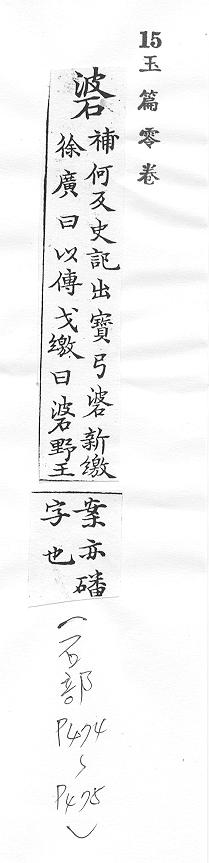 15玉篇零卷
碆
補何反史記出寳弓碆新繳
徐廣曰以傅弋繳曰碆野王
案亦磻
字也
(石部P474~P475)